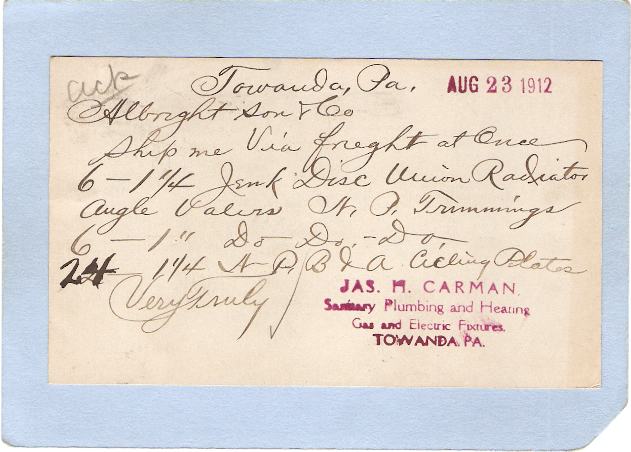 ack
Towanda, Pa. AUG 23 1912
Albright Son & Co
Ship me Via freght at Once
6 - 1 1/4 Jenk Disc Union Radiator
Angle Valvrs N. P. Trimmings
6 - 1" Do - Do. - Do.
24 1 1/4 N P. B & A Cieling Plates
Very Truly
JAS. H. CARMAN.
Sanitary Plumbing and Heating
Gas and Electric Fixtures.
TOWANDA. PA.